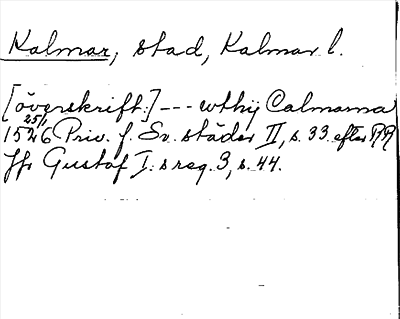 Kalmar, stad, Kalmar l.
[överskrift:] --- wthij Calmarna
1526 25/1 Priv. f. Sv. städer II, s. 33 efter RR
Jfr Gustaf I:s reg. 3, s. 44.